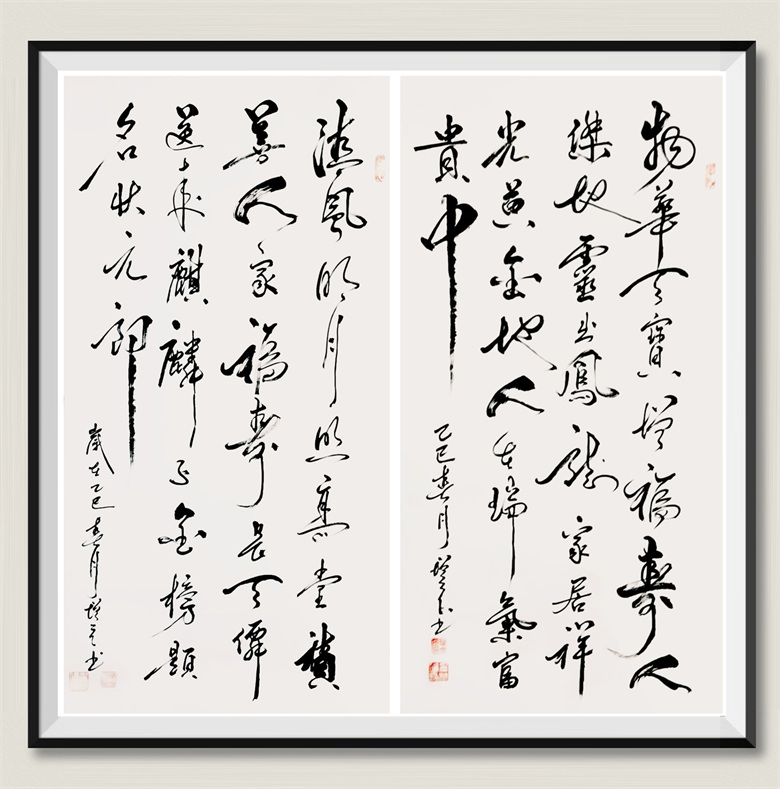 物華天寶增福壽人
傑地靈出鳳龍家居祥
光黃金地人在瑞氣富
貴中
乙巳春月增书
清風明月照高堂積
善人家福壽長天僊
送來麒麟子金榜題
名状元郎
歲在乙巳春月增书